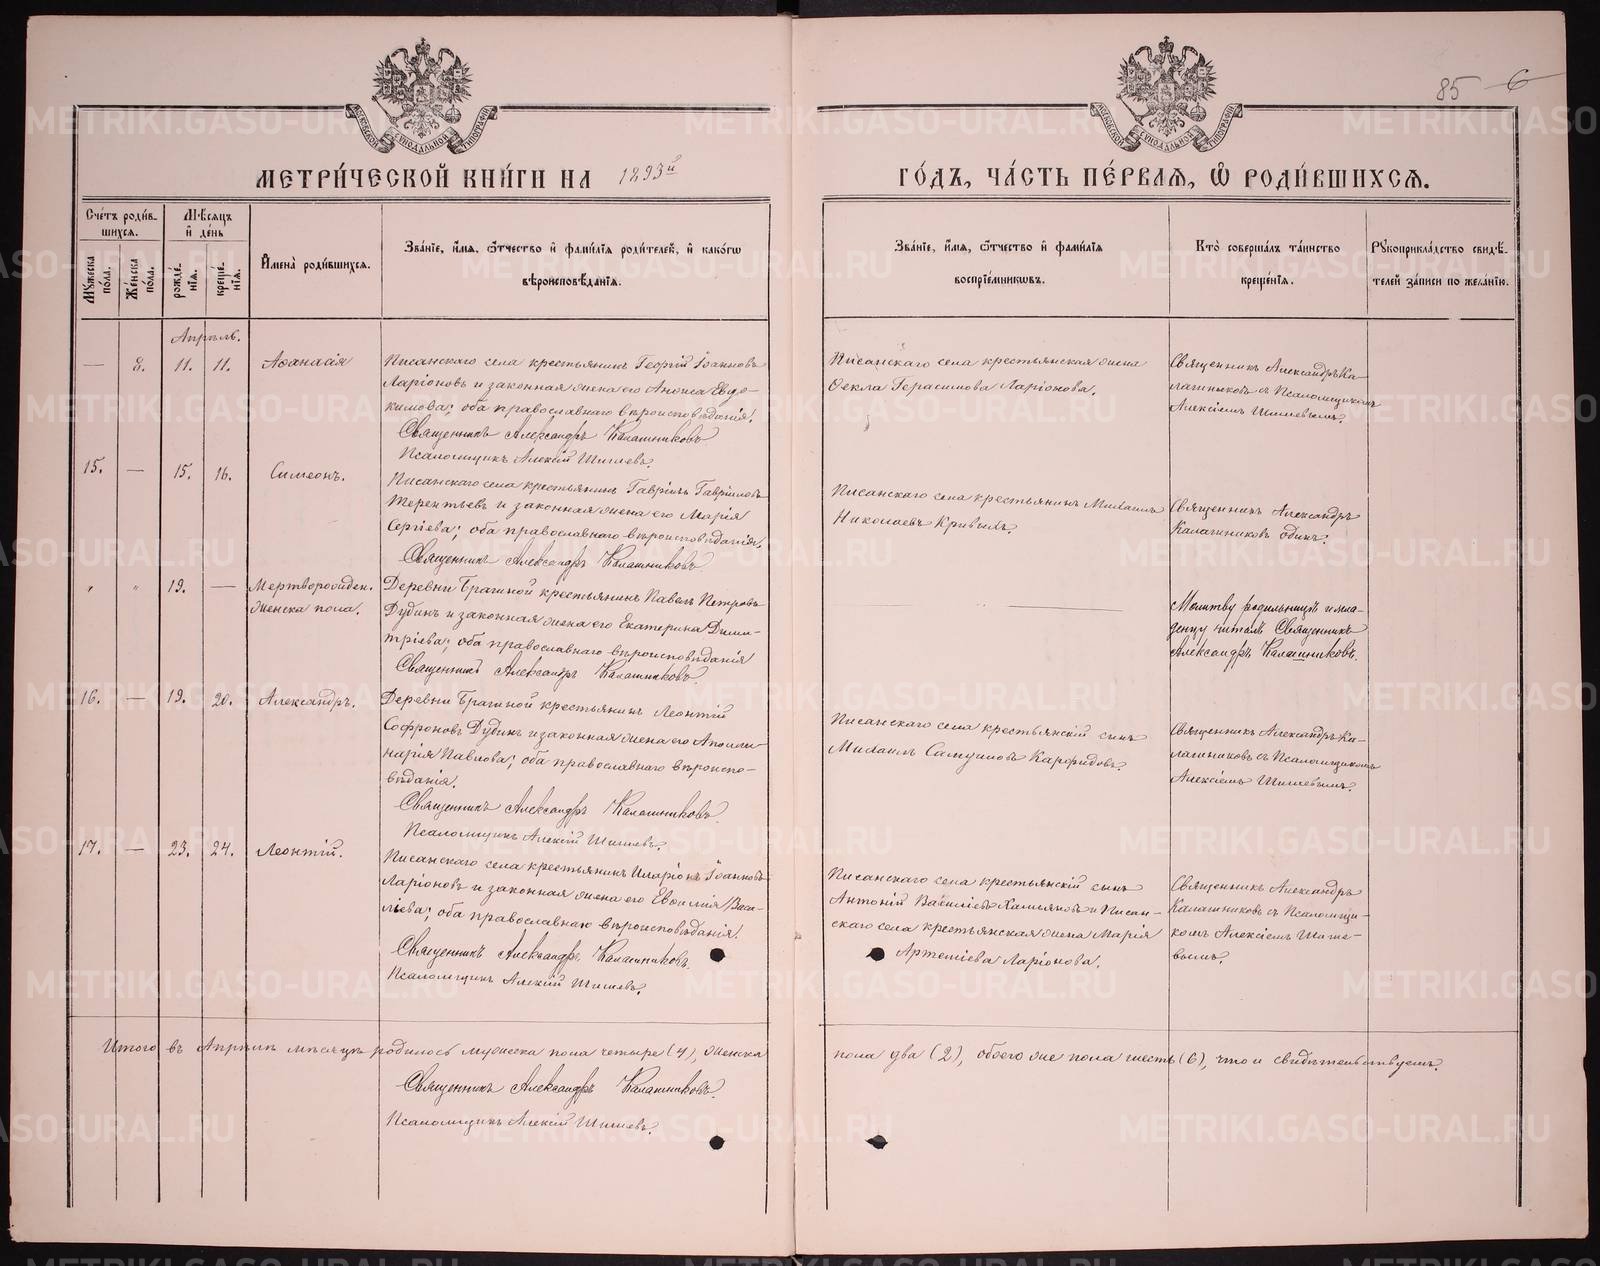 85 6
МОСКОВСКОЙ СѴНОДАЛЬНОЙ ТИПОГРАФІИ
МОСКОВСКОЙ СѴНОДАЛЬНОЙ ТИПОГРАФІИ
МЕТРИ́ЧЕСКОЙ КНИ́ГИ НА 1893й
ГО́ДЪ, ЧА́СТЬ ПЕ́РВАЯ, Ѡ РОДИ́ВШИХСЯ.
Сче́тъ роди́в-
шихся.
Му́жеска по́ла.
Же́нска по́ла.
Мѣ́сяцъ и҆ де́нь
рожде-
нія.
креще́-
нія.
И҆мена̀ роди́вшихся.
Зва́ніе, и҆́мя, ѻ҆́тчество и҆ фамилія роди́телей, и҆ како́гѡ
вѣроисповѣ́данія.
Зва́ніе, и҆́мя, ѻ҆́тчество и҆ фами́лія
воспріе́мникѡвъ.
Кто̀ соверша́лъ та́инство
креще́нія.
Рꙋкоприкла́дство свидѣ́-
телей за́писи по жела́нію.
Апрѣль.
— 8. 11. 11. Аѳанасія
Писанскаго села крестьянинъ Георгій Іоанновъ
Ларіоновъ и законная жена его Анѳиса Евдо-
кимова; оба православнаго вѣроисповѣданія.
Священникъ Александръ Калашниковъ
Псаломщикъ Алексій Шишевъ.
Писанскаго села крестьянская жена
Ѳекла Герасимова Ларіонова.
Священникъ Александръ Ка-
лашниковъ съ Псаломщикомъ
Алексіемъ Шишевымъ.
15. — 15. 16. Симеонъ.
Писанскаго села крестьянинъ Гавріилъ Гавріиловъ
Терентьевъ и законная жена его Марія
Сергіева; оба православнаго вѣроисповѣданія.
Священникъ Александръ Калашниковъ
Писанскаго села крестьянинъ Михаилъ
Николаевъ Кривыхъ.
Священникъ Александръ
Калашниковъ одинъ.
" " 19. — Мертворожден.
женска пола.
Деревни Брагиной крестьянинъ Павелъ Петровъ
Дубинъ и законная жена его Екатерина Дими-
тріева; оба православнаго вѣроисповѣданія
Священникъ Александръ Калашниковъ.
—
Молитву родильницѣ и мла-
денцу читалъ Священникъ
Александръ Калашниковъ.
16. — 19. 20. Александръ.
Деревни Брагиной крестьянинъ Леонтій
Софроновъ Дубинъ и законная жена его Аполли-
нарія Павлова; оба православнаго вѣроиспо-
вѣданія.
Священникъ Александръ Калашниковъ.
Псаломщикъ Алексій Шишевъ.
Писанскаго села крестьянскій сынъ
Михаилъ Самуиловъ Карфидовъ.
Священникъ Александръ Ка-
лашниковъ съ Псаломщикомъ
Алексіемъ Шишевымъ.
17. — 23. 24. Леонтій.
Писанскаго села крестьянинъ Иларіонъ Іоанновъ
Ларіоновъ и законная жена его Евѳимія Васи-
ліева; оба православнаго вѣроисповѣданія.
Священникъ Александръ Калашниковъ.
Псаломщикъ Алексій Шишевъ.
Писанскаго села крестьянскій сынъ
Антоній Василіевъ и Писан-
скаго села крестьянская жена Марія
Артеміева Ларіонова.
Священникъ Александръ
Калашниковъ съ Псаломщи-
комъ Алексіемъ Шише-
вымъ.
Итого въ Апрѣлѣ мѣсяцѣ родилось мужеска пола четыре (4), женска
пола два (2), обоего же пола шесть (6), что и свидѣтельствуемъ.
Священникъ Александръ Калашниковъ.
Псаломщикъ Алексій Шишевъ.
METRIKI.GASO-URAL.RU